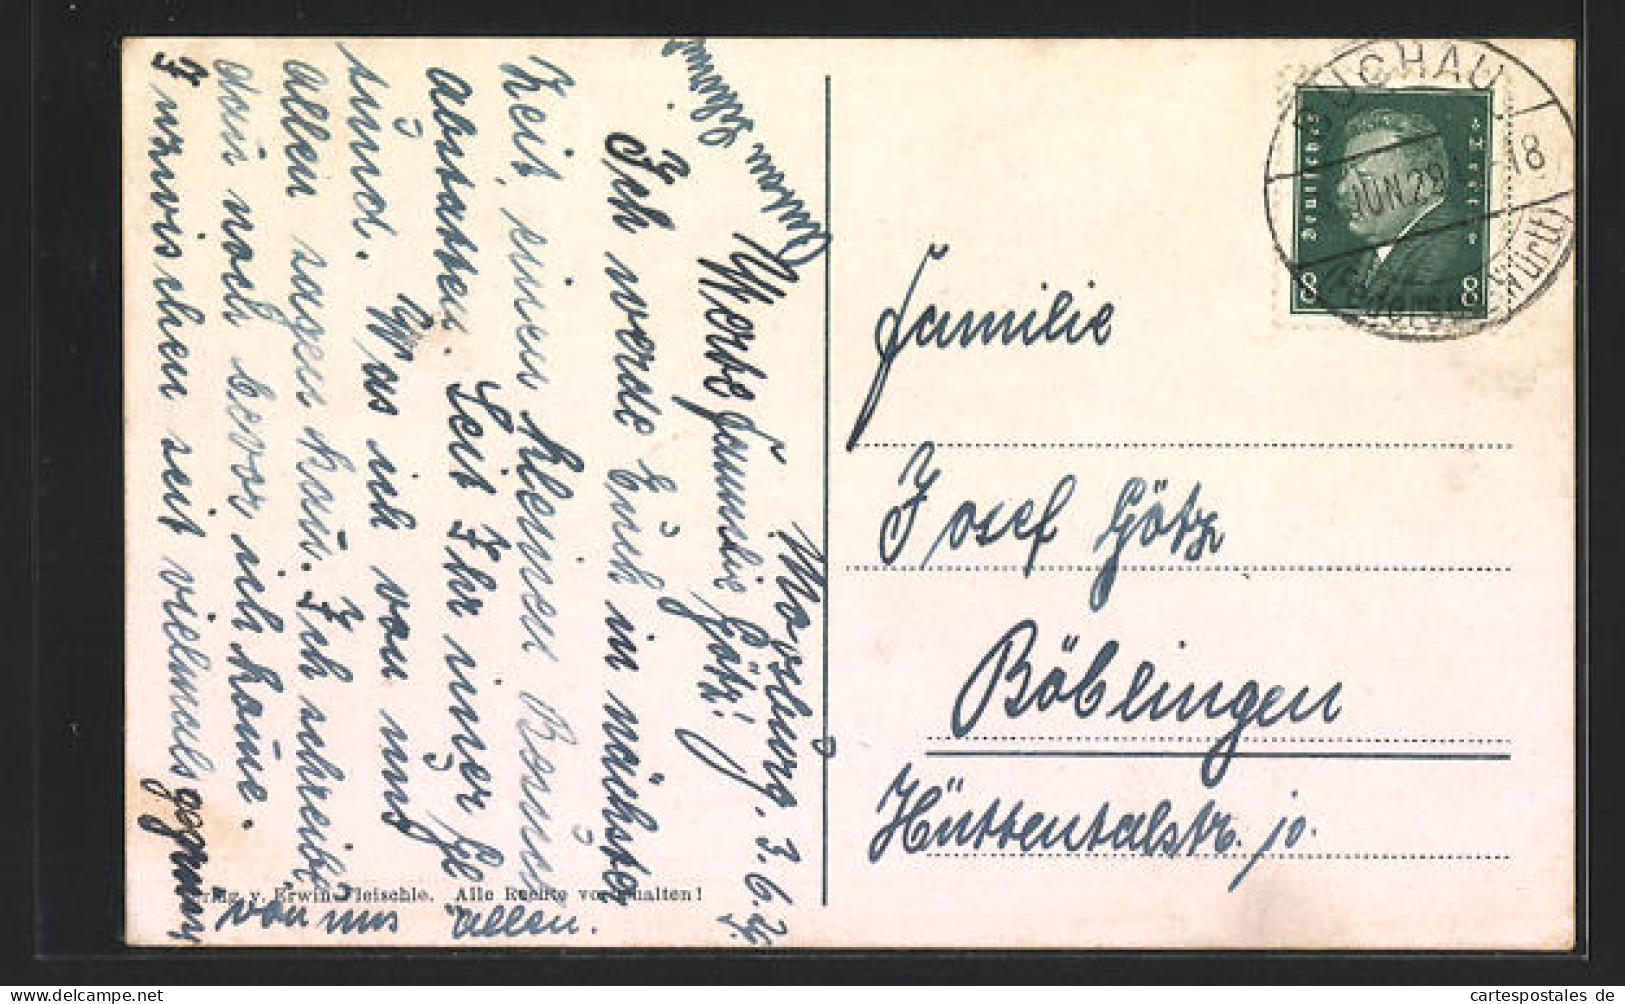 Moosburg, 3.6.29.
Werte Familie Götz!
Ich werde Euch in nächster
Zeit, einen kleinen Besuch
abstatten. Seit Ihr
sind. Was ich von uns
allen sagen kann. Ich schreibe
dann noch bevor ich komme.
Inzwischen seit vielmals gegrüßt
von uns allen.
Verlg. v. Erwin Fleischle. Alle Rechte vorbehalten!
BUCHAU
JUN. 29
-18
(Württ)
Deutsches Reich
8 8
Familie
Josef Götz
Böblingen
Hüttentalstr. 10.
cartespostales de